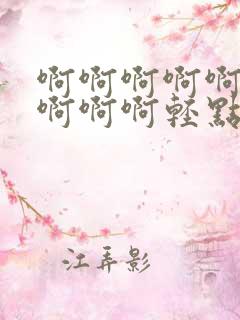 啊啊啊啊啊
啊啊啊輕點
江弄影